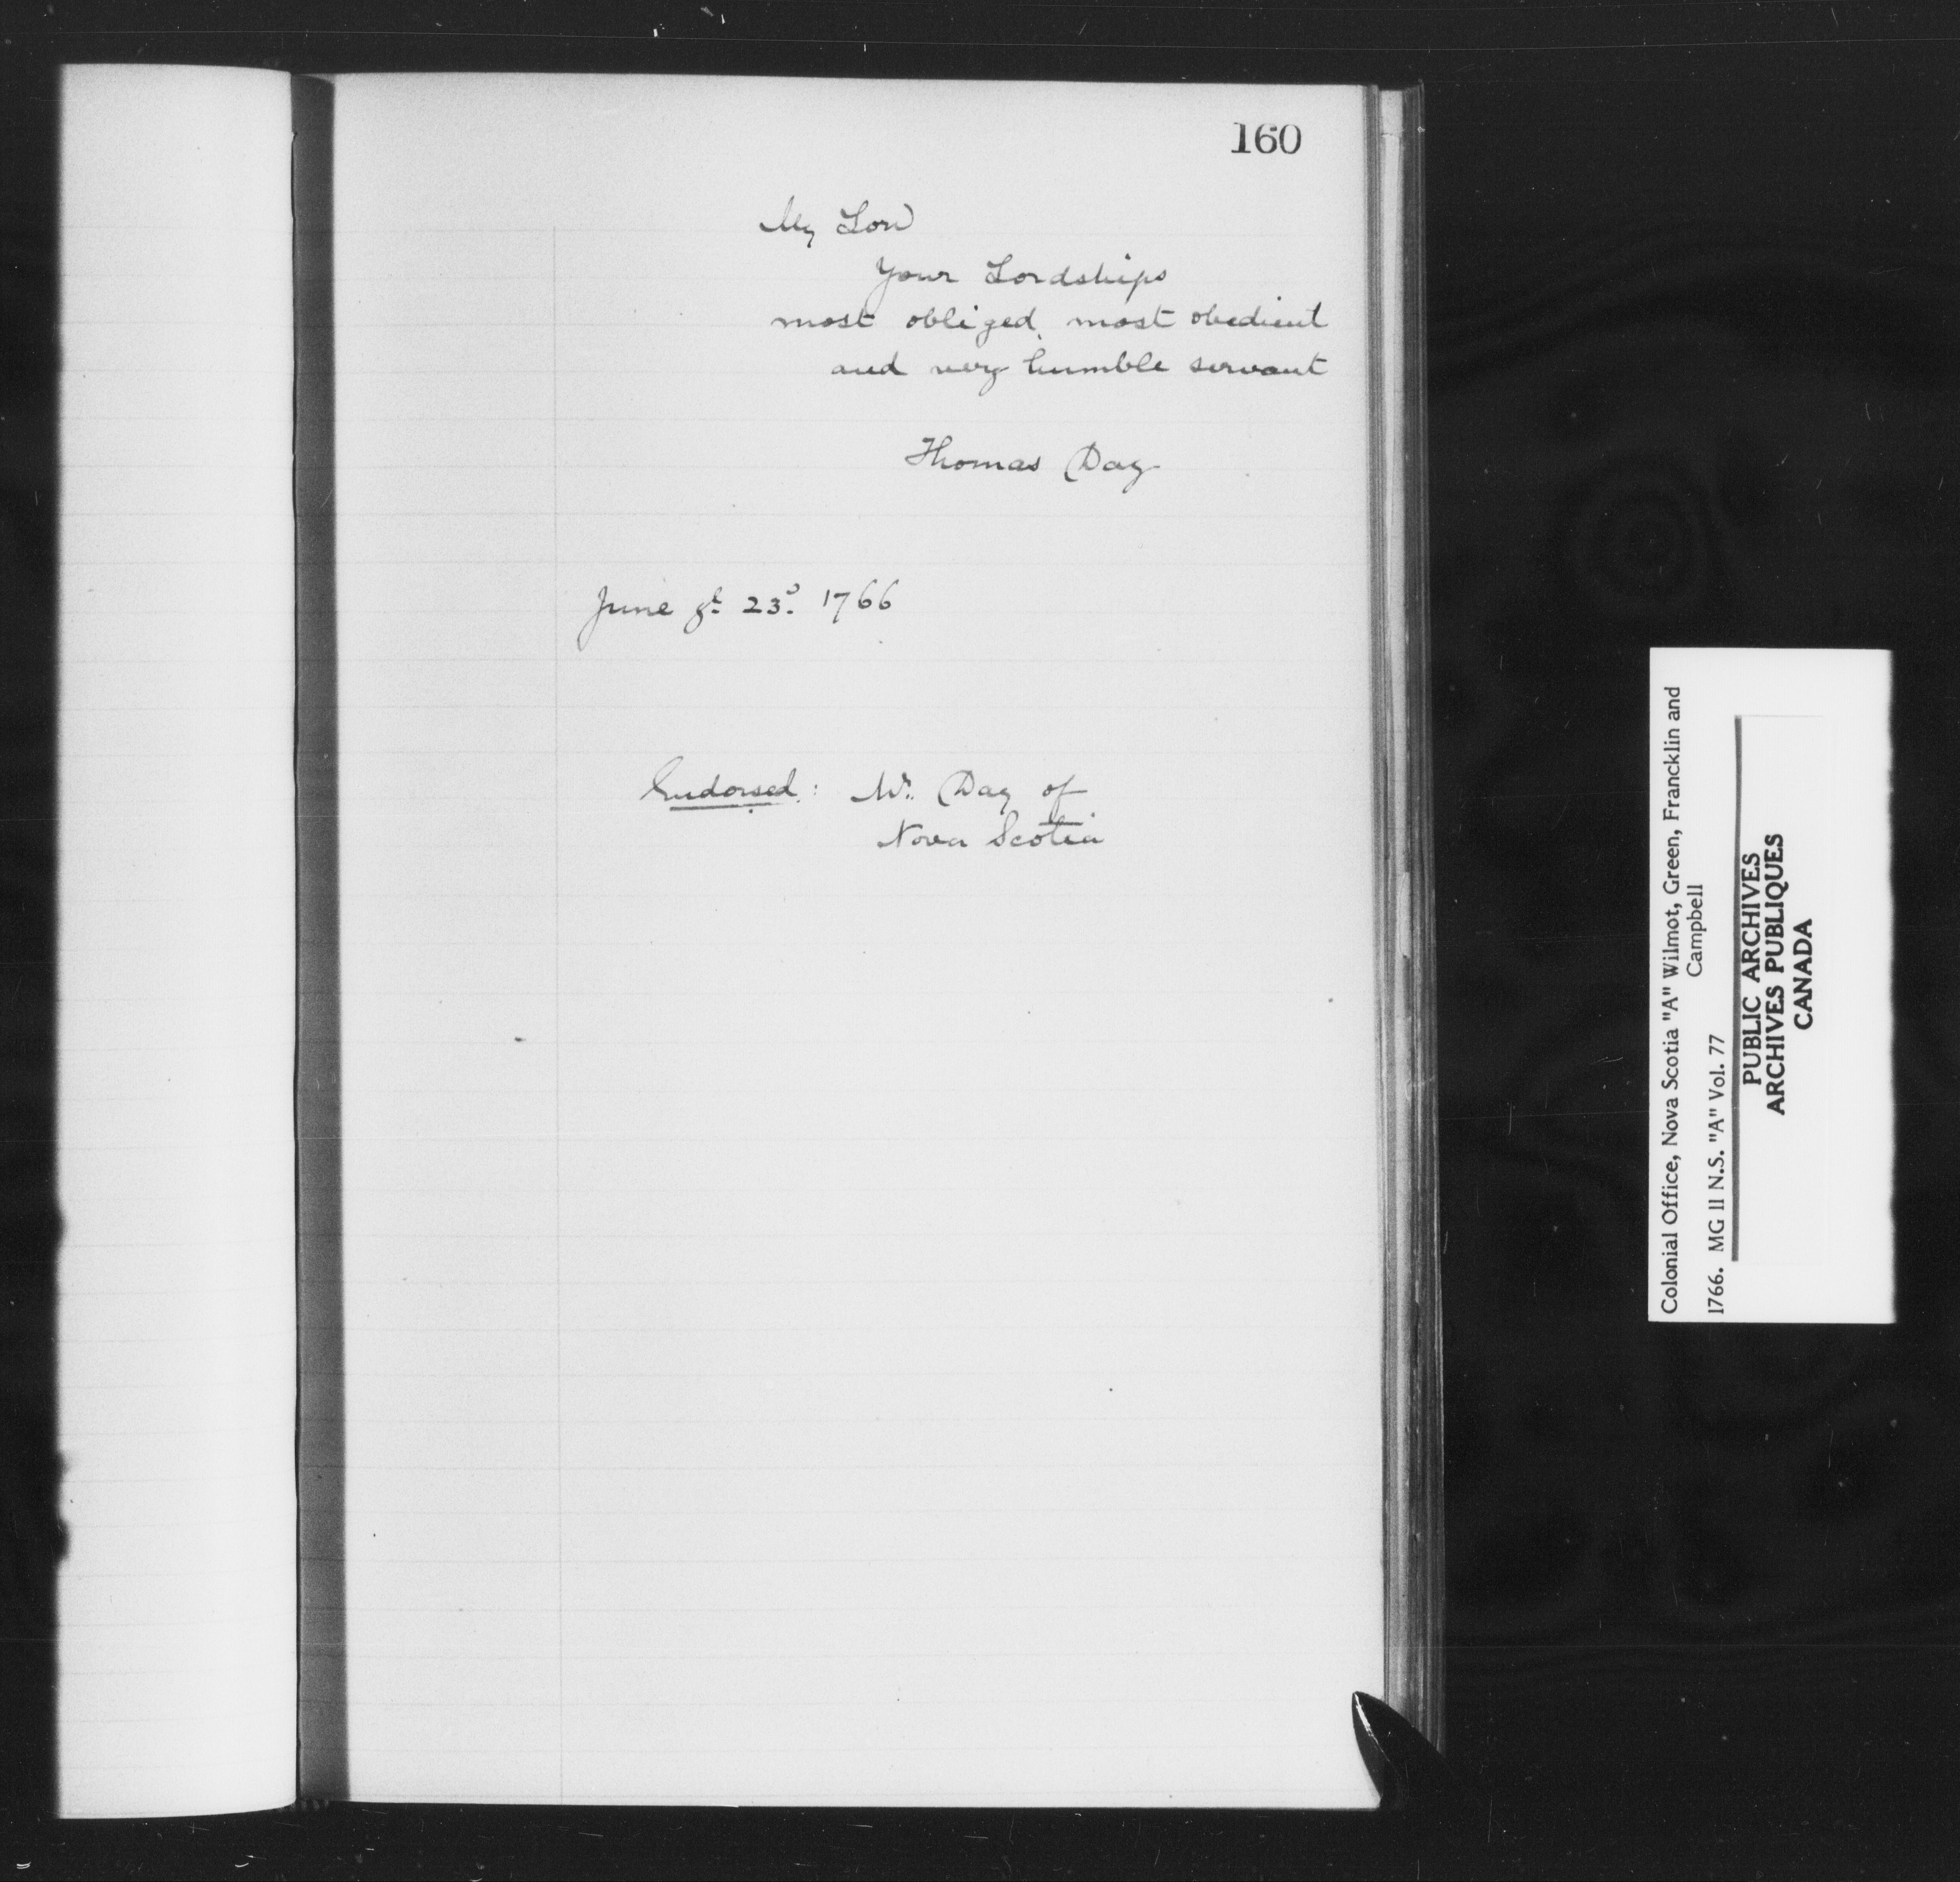 160
My Lord
Your Lordships
most obliged, most obedient
and very humble servant
Thomas Day
June ye 23d. 1766
Endorsed: Mr. Day of
Nova Scotia
Colonial Office, Nova Scotia "A" Wilmot, Green, Francklin and
Campbell
1766. MG 11 N.S. "A" Vol. 77
PUBLIC ARCHIVES
ARCHIVES PUBLIQUES
CANADA